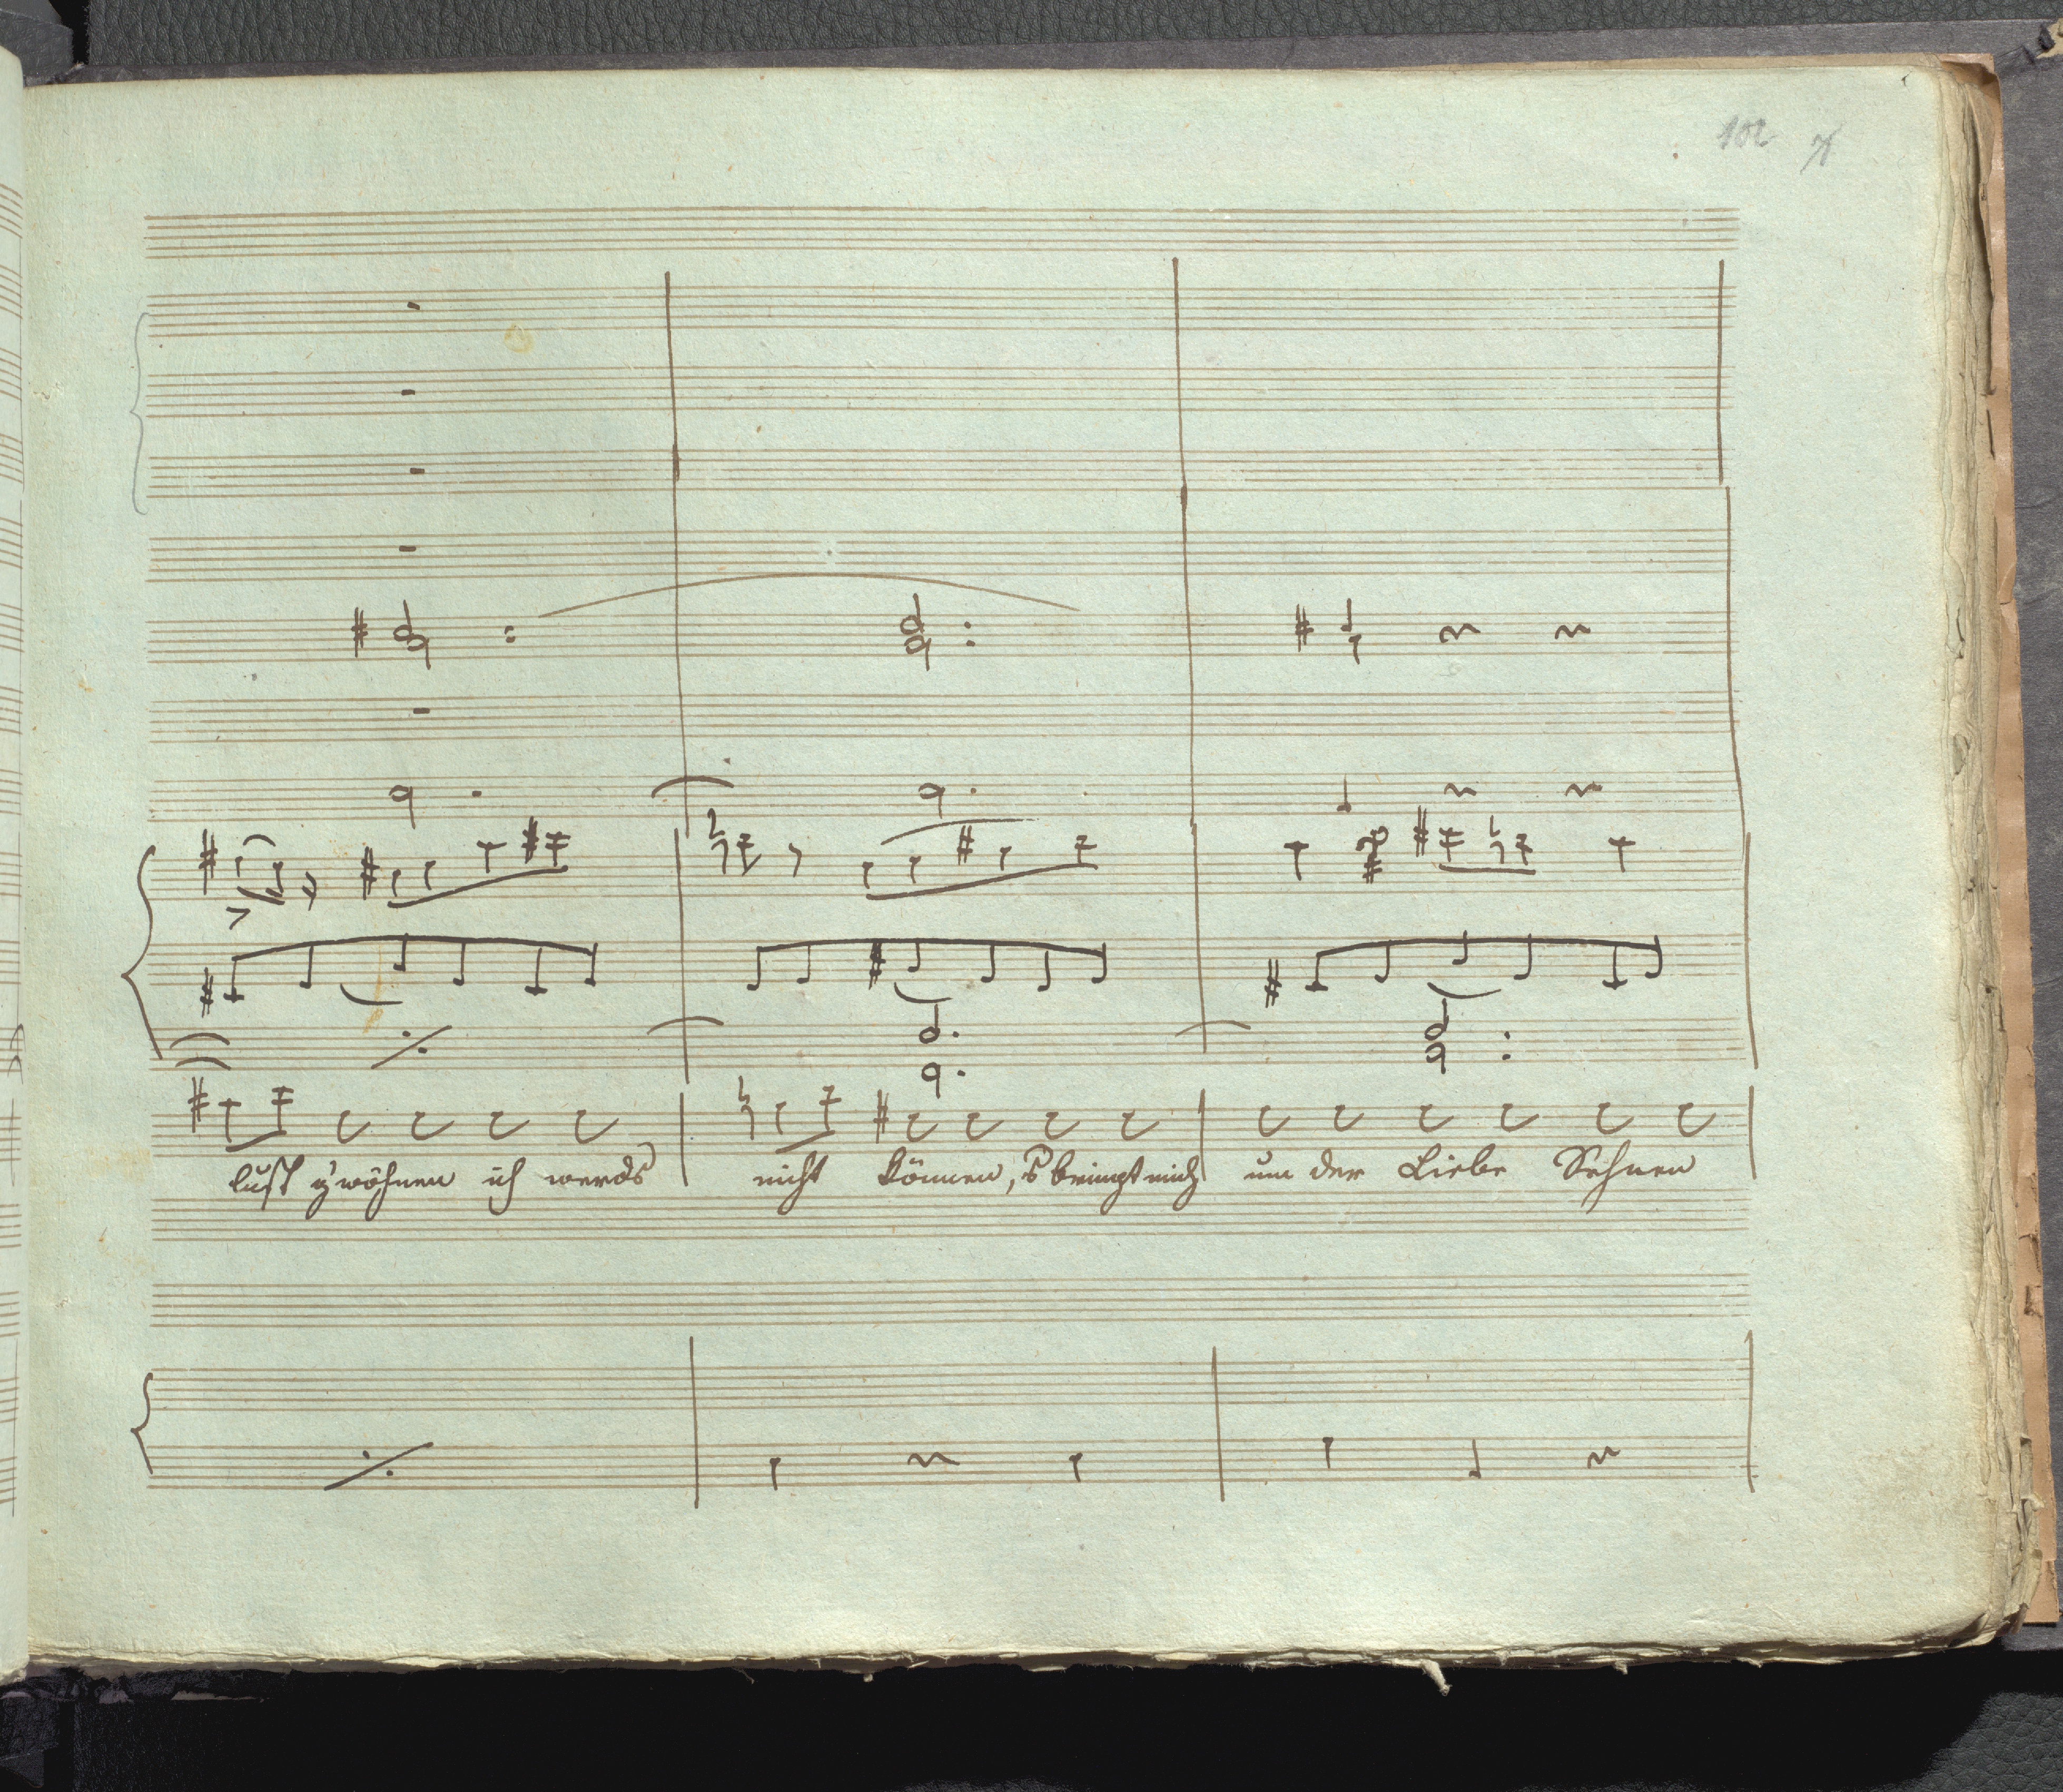 102
lust z'wöhnen ich werds nicht können, s bringt mich um der Liebe Sehnen